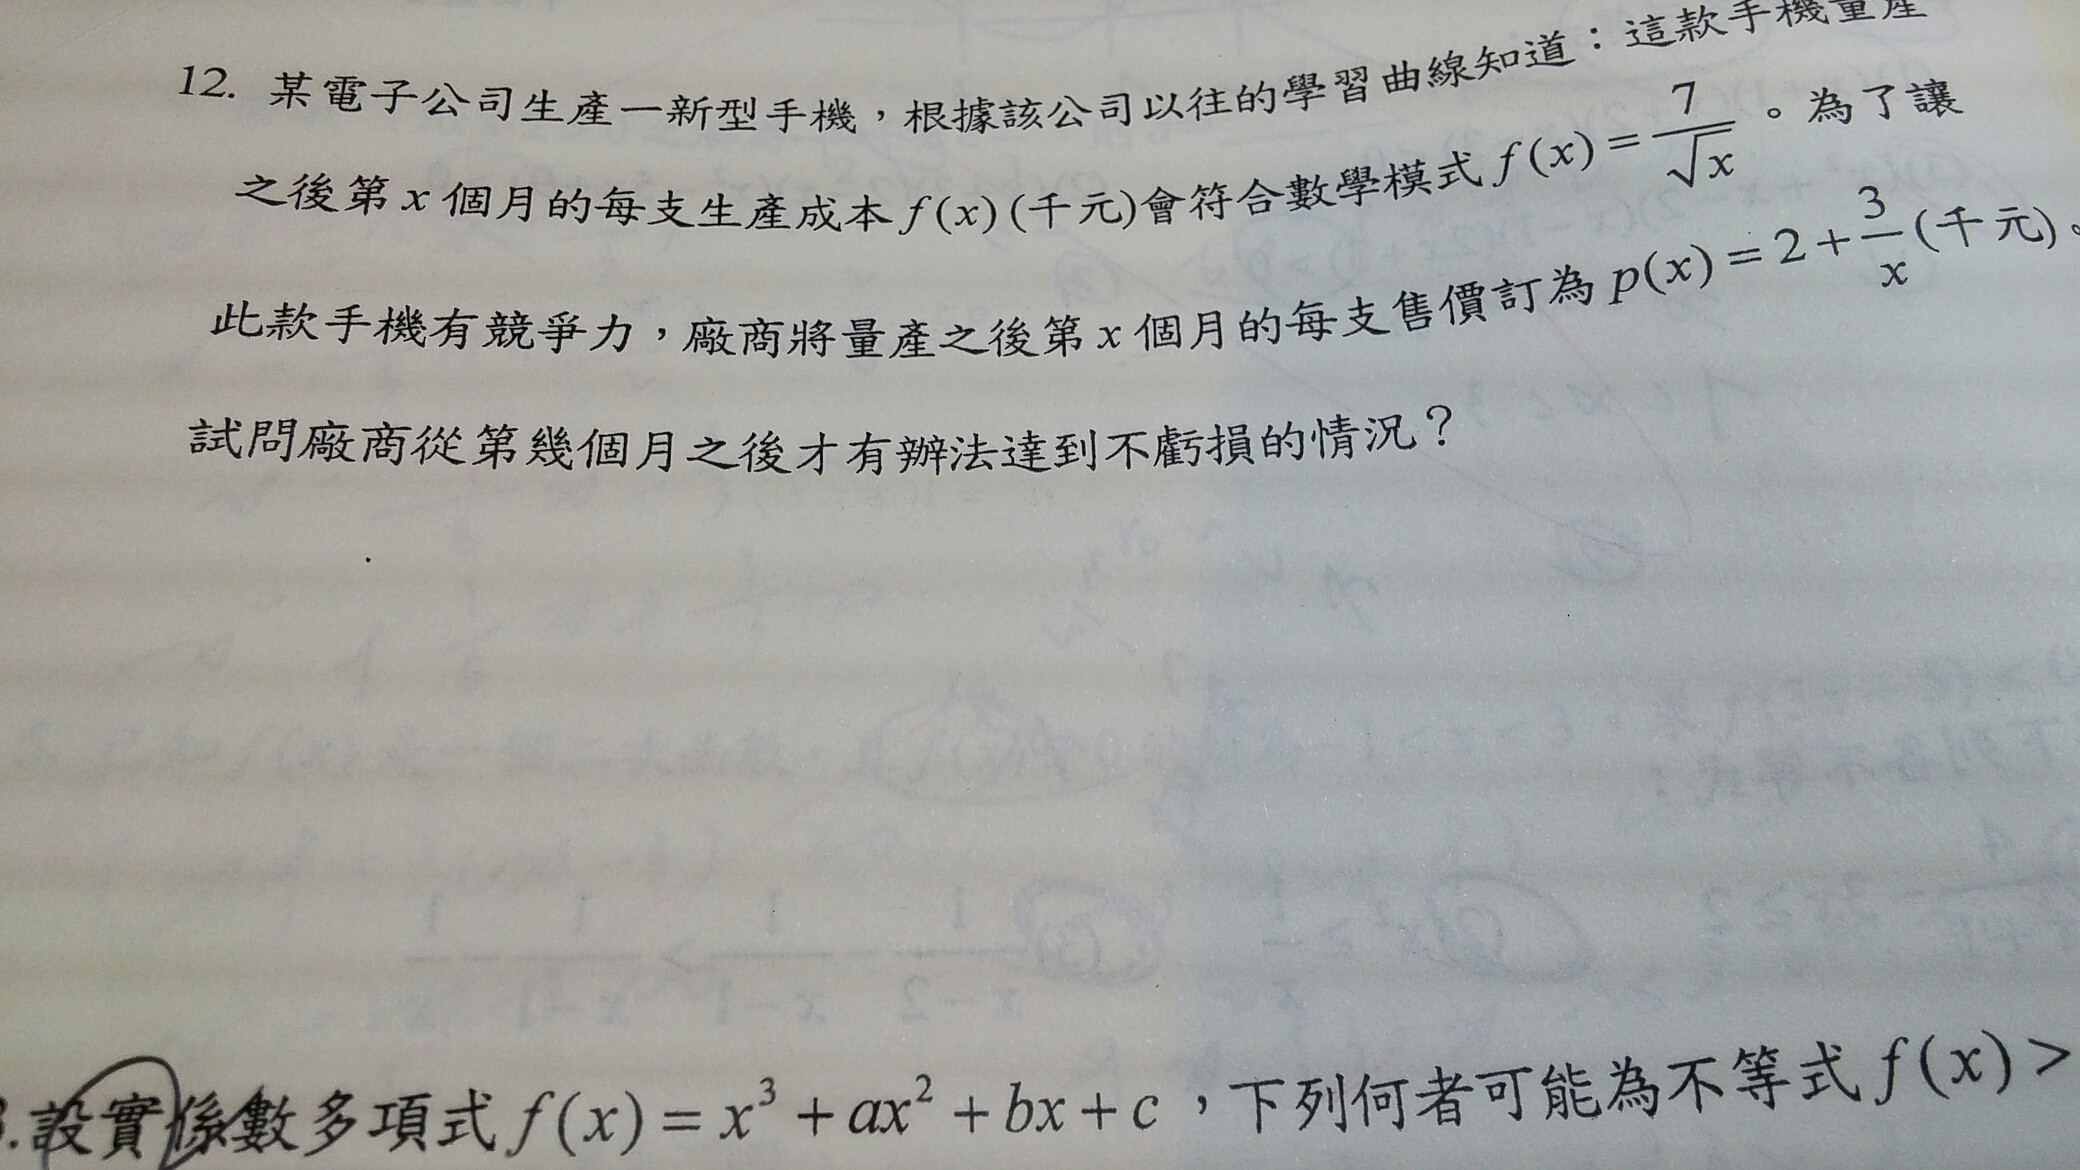 12. 某電子公司生產一新型手機，根據該公司以往的學習曲線知道：這款手機量產
之後第 x 個月的每支生產成本 f(x) (千元)會符合數學模式 f(x) = 7/√x 。為了讓
此款手機有競爭力，廠商將量產之後第 x 個月的每支售價訂為 p(x) = 2 + 3/x (千元)。
試問廠商從第幾個月之後才有辦法達到不虧損的情況？
.設實係數多項式 f(x) = x³ + ax² + bx + c ，下列何者可能為不等式 f(x) >